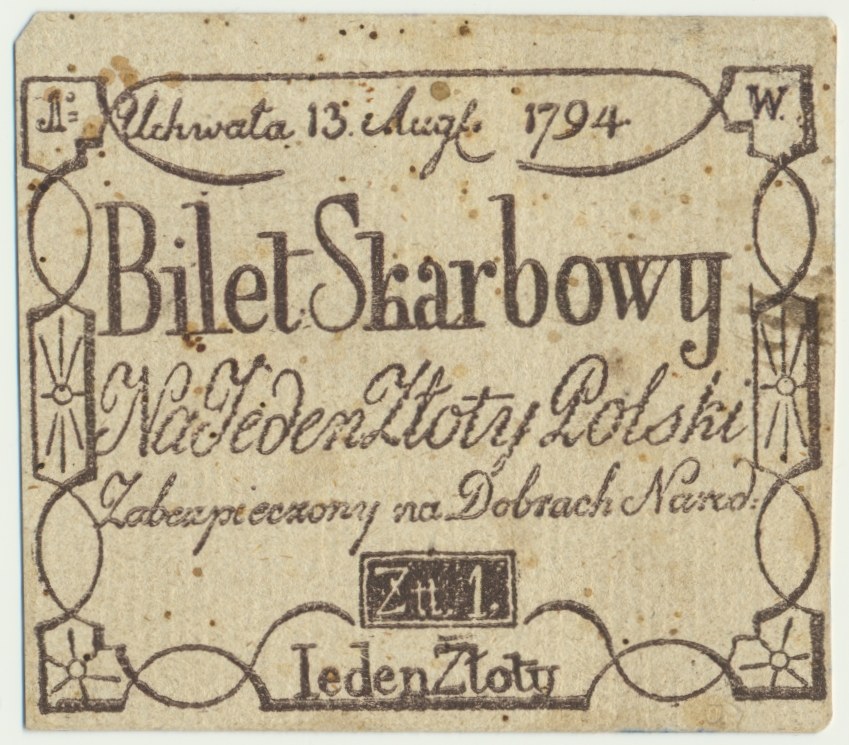 1: Uchwała 13. Augſ. 1794. W.
Bilet Skarbowy
Na Jeden Złoty Polski
Zabezpieczony na Dobrach Narod:
Złł. 1.
Ieden Złoty